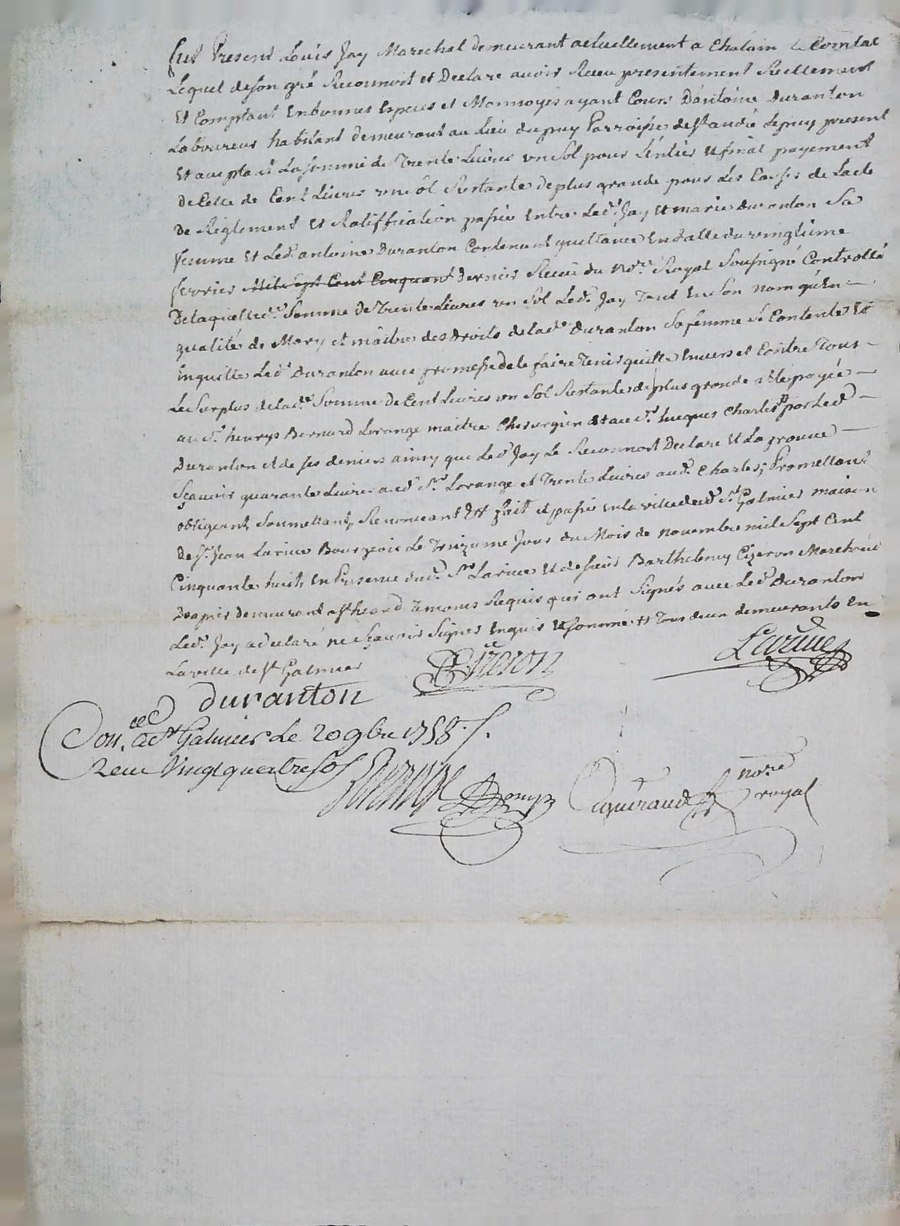 fut Present Louis Jay Marechal demeurant actuellement a Chalain le Comtal
Lequel de son gré Reconnoit et Declare avoir Receu presentement Reellement
Et Comptant En bonnes Especes et Monnoyes ayant Cours D'antoine Duranton
Laboureur habitant demeurant au Lieu du puy Parroisse de St andré Lepuy present
Et acceptant La somme de Trente Livres un sol pour Lentier Et final payement
de Celle de Cent Livres un sol Restante de plus grande pour Les Causes de Lacte
De Reglement Et Ratiffication passée Entre Led. Jay Et marie duranton Sa
femme Et Led. antoine Duranton Contenant quittance En datte du vingtieme
fevrier Mil Sept Cent Cinquante dernier Receu du Nore. Royal Soussigné Controllé
De laquelle Somme De Trente Livres un Sol Led. Jay Tant En son nom qu'En
qualité de Mary et maitre des droits de lad. Duranton Sa femme Se Contente Et
Enquitte Led. Duranton avec promesse de le faire Tenir quitte Envers et Contre Tous
Le Surplus de lad. Somme de Cent Livres un Sol Restante de plus grande a Eté payée
au Sr. henrys Bernard Lorange maitre Chirurgien Et au Sr. Jacques Charles par Led.
Duranton et de ses deniers ainsy que Led. Jay Le Reconnoit Declare Et La prouve
Sçavoir quarante Livres aud. Sr. Lorange et Trente Livres aud. Charles; Promettant
obligeant, Soumettant, Renonceant Ett. fait et passé En la ville de St. Galmier maison
de Sr. Jean Larive Bourgeois Le Treizieme Jour du Mois de novembre mil Sept Cent
Cinquante huit En Presence dud. Sr. Larive Et de sieur Barthelemy Cizeron Marchand
Drapier demeurant Temoins Requis qui ont Signés avec Led. Duranton
Led. Jay a declaré ne Sçavoir Signer Enquis Et Sommé Et Tous deux demeurants En
La ville de St Galmier
Cizeron Larive
duranton
Con.lé a St Galmier Le 20 9bre 1758
Receu vingt quatre sols
nore royal